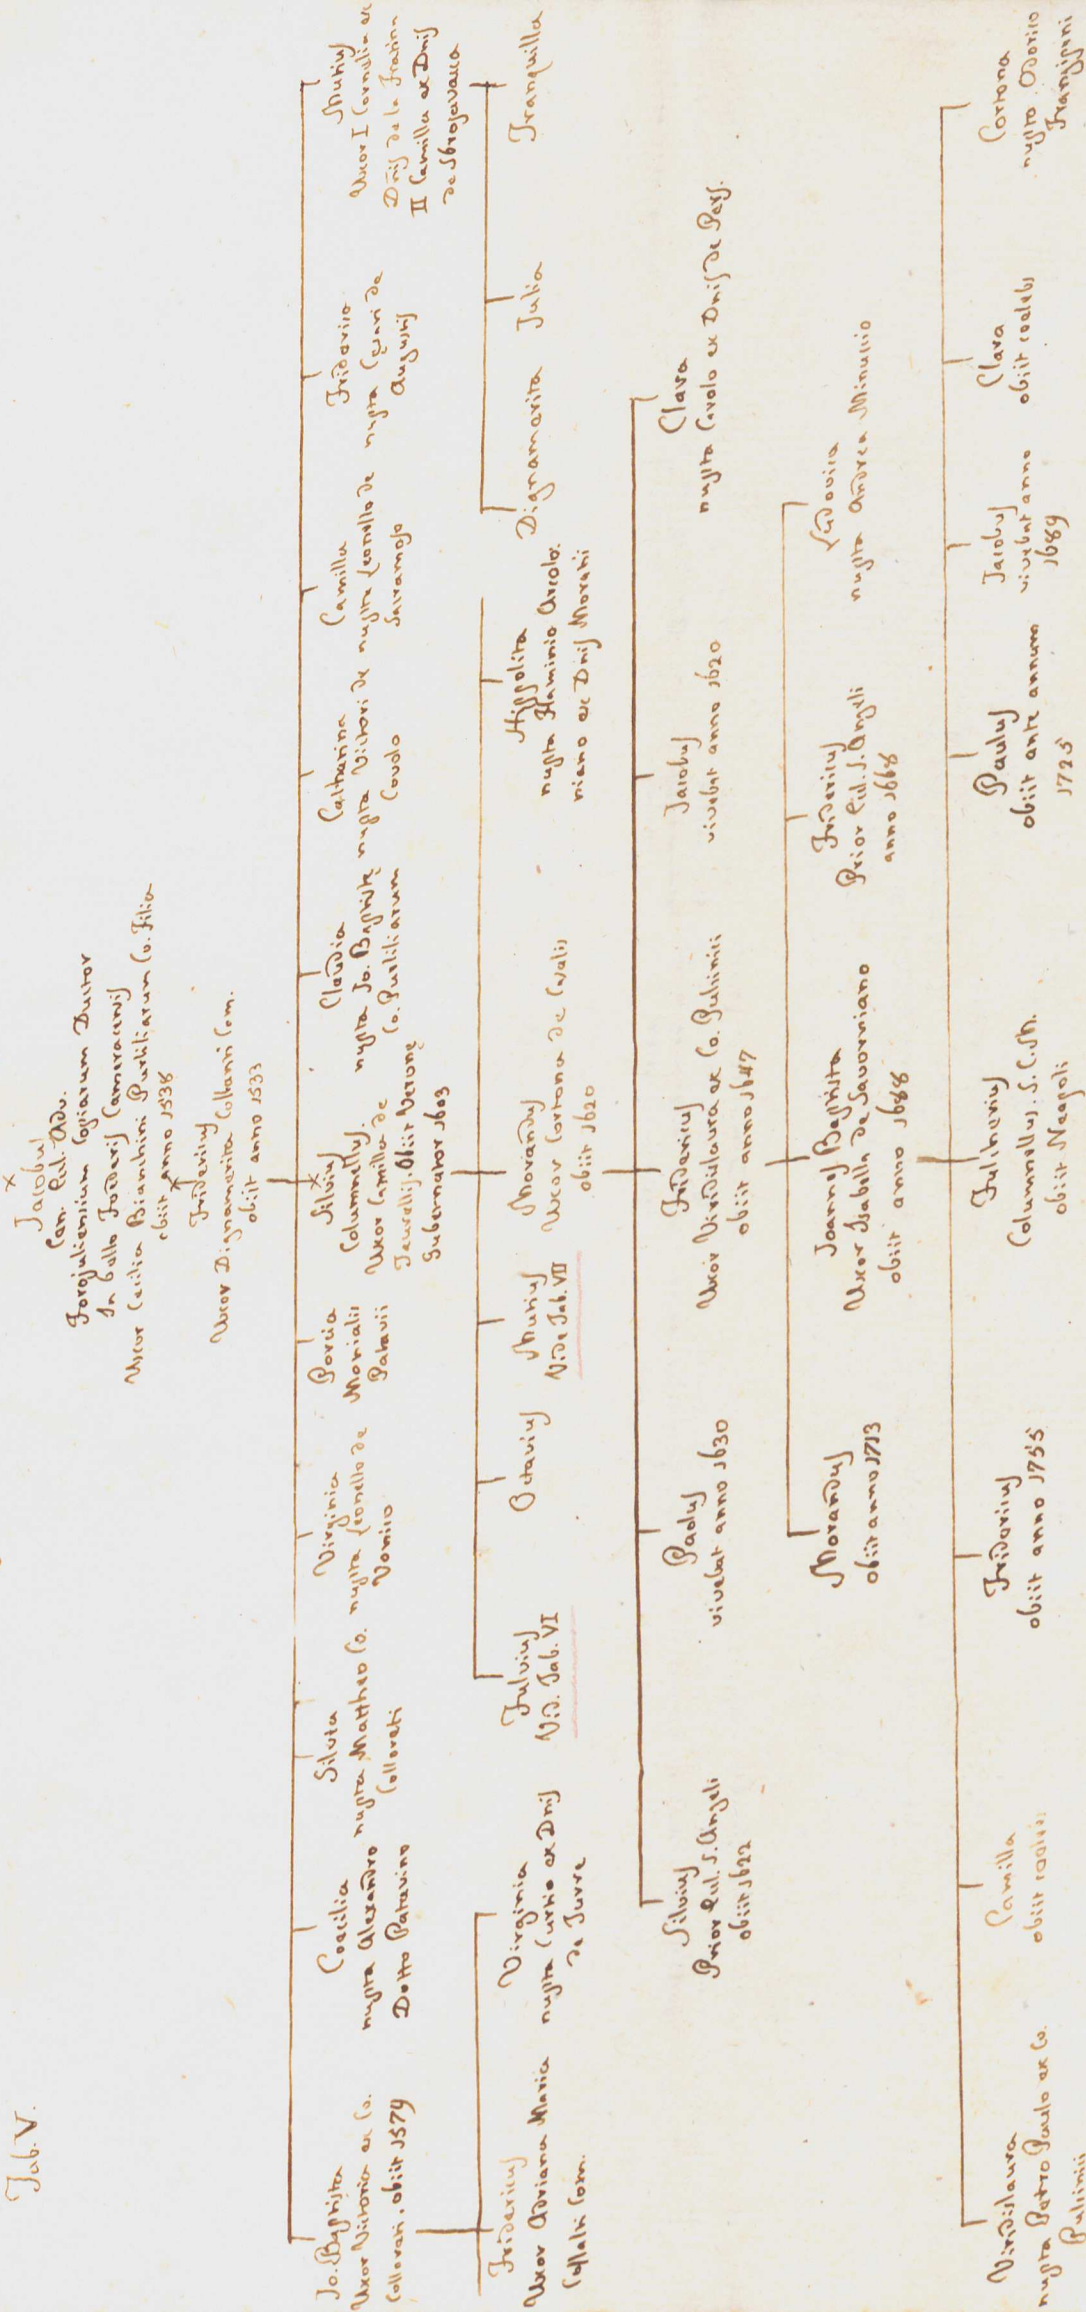 Tab. V.
Jacobus
Can. Ciul. Adv.
Forojuliensium Copiarum Ductor
In bello Foederis Cameracensis
Uxor Cecilia Bianchini Purliliarum Co. Filia
obiit anno 1538
Fridericus
Uxor Dignamerita Collauti Com.
obiit anno 1533
Jo. Baptista
Uxor Victoria ex Co.
Collorati, obiit 1579
Coecilia
nupta Alexandro
Dotto Patavino
Silvia
nupta Mattheo Co.
Collorati
Virginia
nupta Leonello de
Vonico
Porcia
Monialis
Patavii
Silvius
Columnellus.
Uxor Camilla de
Taurellis, Obiit Veronę
Gubernator 1603
Claudia
nupta Jo. Baptistę
Co. Purliliarum
Catharina
nupta Victori de
Coudo
Camilla
nupta Leonello de
Fridarica
nupta Cęsari de
Augustis
Mutius
Uxor I Cornelia ex
Dnis de la Fratina
II Camilla ex Dnis
de Sbrojavacca
Fridericus
Uxor Adriana Maria
Collalti Com.
Virginia
nupta Curtio ex Dnis
de Turre
Fulvius
Vid. Tab. VI
Octavius
Mutius
Vide Tab. VII
Morandus
Uxor Cortona de
obiit 1620
Hippolita
nupta Flaminio Arcolo-
niano ex Dnis Moratii
Dignamerita
Julia
Tranquilla
Silvius
Prior Ciul. S. Angeli
obiit 1622
Paolus
vivebat anno 1630
Fridericus
Uxor Viridislaura ex Co. Pulinici
obiit anno 1647
Jacobus
vivebat anno 1620
Clara
nupta Carolo ex Dnis de Pers.
Morandus
obiit anno 1713
Joannes Baptista
Uxor Isabella de Savorniano
obiit anno 1688
Fridericus
Prior Ciul. S. Angeli
anno 1668
Ludovica
nupta Andrea Minussio
Viridislaura
nupta Petro Paulo ex Co.
Pulinici
Camilla
obiit coelebs
Fridericus
obiit anno 1755
Julherius
Columnellus. S. C. M.
obiit Neapoli
Paulus
obiit ante annum
1725
Jacobus
vivebat anno
1689
Clara
obiit coelebs
Cortona
nupta Odorico
Frangipani